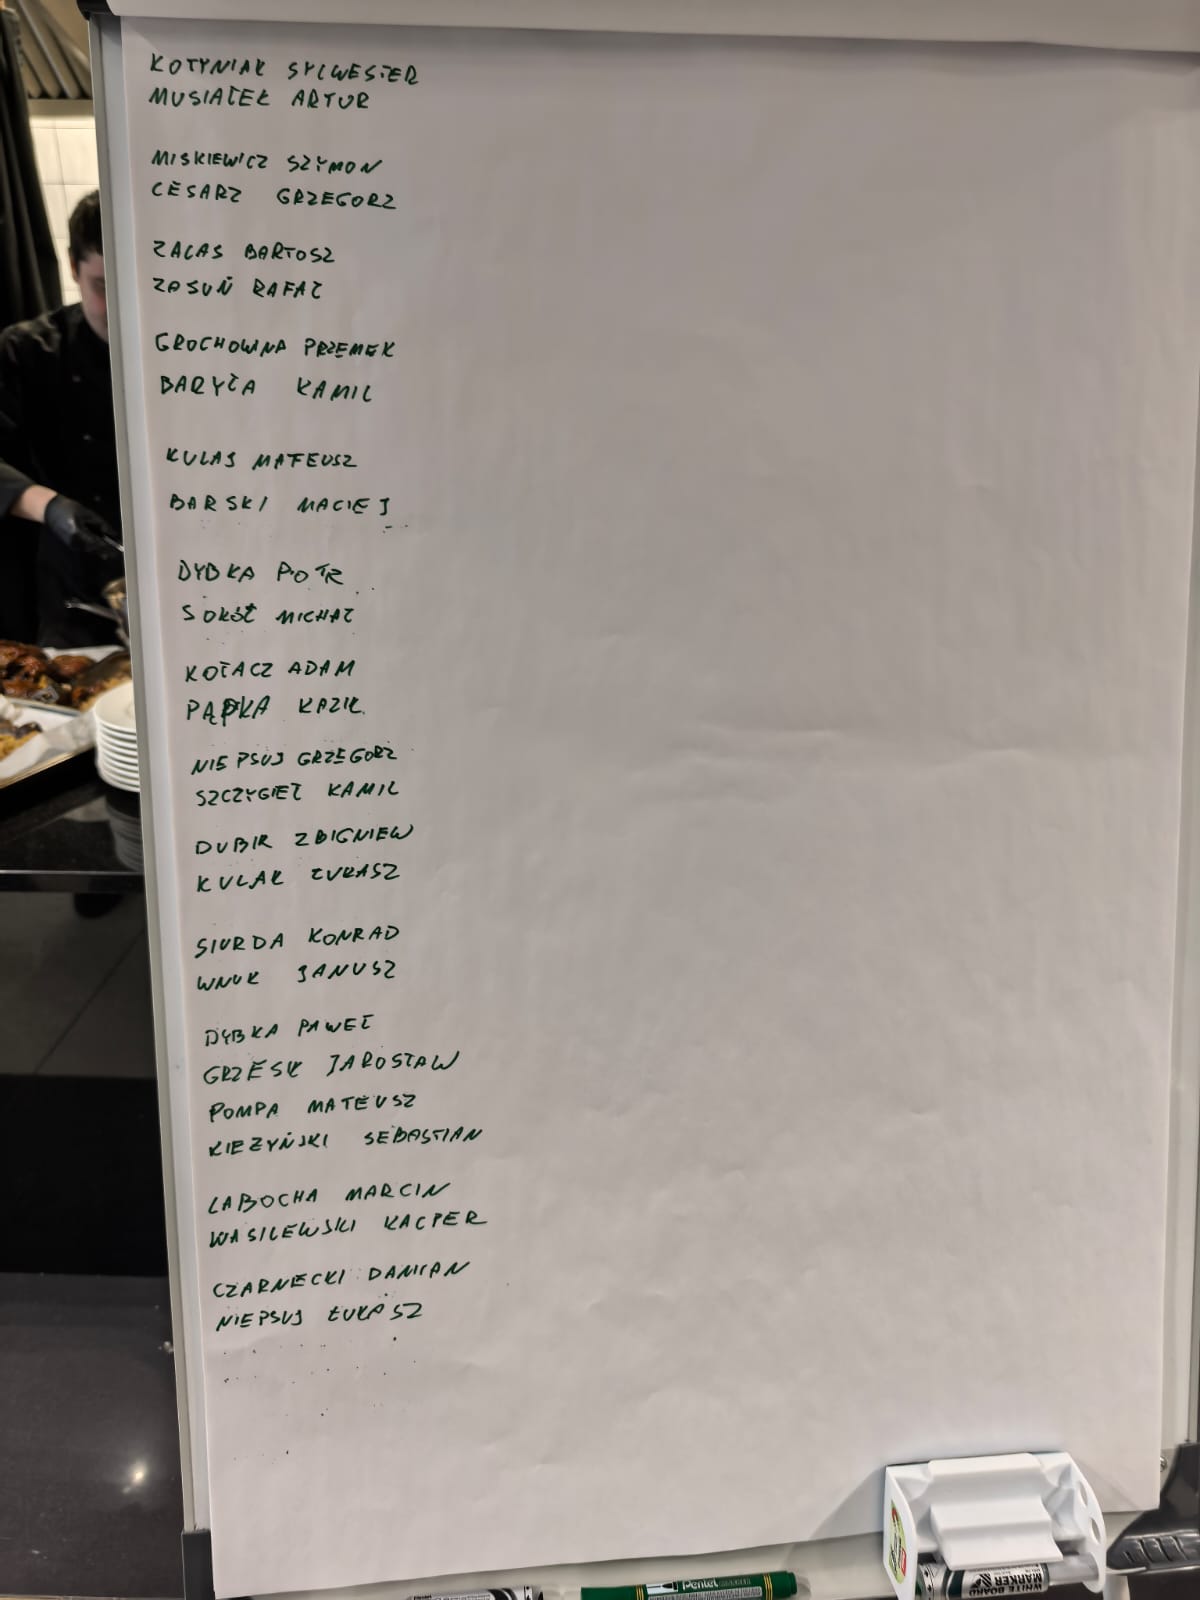 KOTYNIAK SYLWESTER
MUSIAŁEK ARTUR
MISKIEWICZ SZYMON
CĖSARZ GRZEGORZ
ZALAS BARTOSZ
ZASUŃ RAFAŁ
GROCHOWINA PRZEMEK
BARYŁA KAMIL
KULAS MATEUSZ
BARSKI MACIEJ
DYBKA PIOTR
SOKÓŁ MICHAŁ
KOŁACZ ADAM
PĄPKA KAZIK
NIEPSUJ GRZEGORZ
SZCZYGIEŁ KAMIL
DUBIK ZBIGNIEW
KULAK ŁUKASZ
SIURDA KONRAD
WNUK JANUSZ
DYBKA PAWEŁ
GRZESIK JAROSŁAW
POMPA MATEUSZ
KIEZYŃSKI SEBASTIAN
LABOCHA MARCIN
WASILEWSKI KACPER
CZARNECKI DAMIAN
NIEPSUJ ŁUKASZ
Pentel MARKER
WHITE BOARD
MARKER